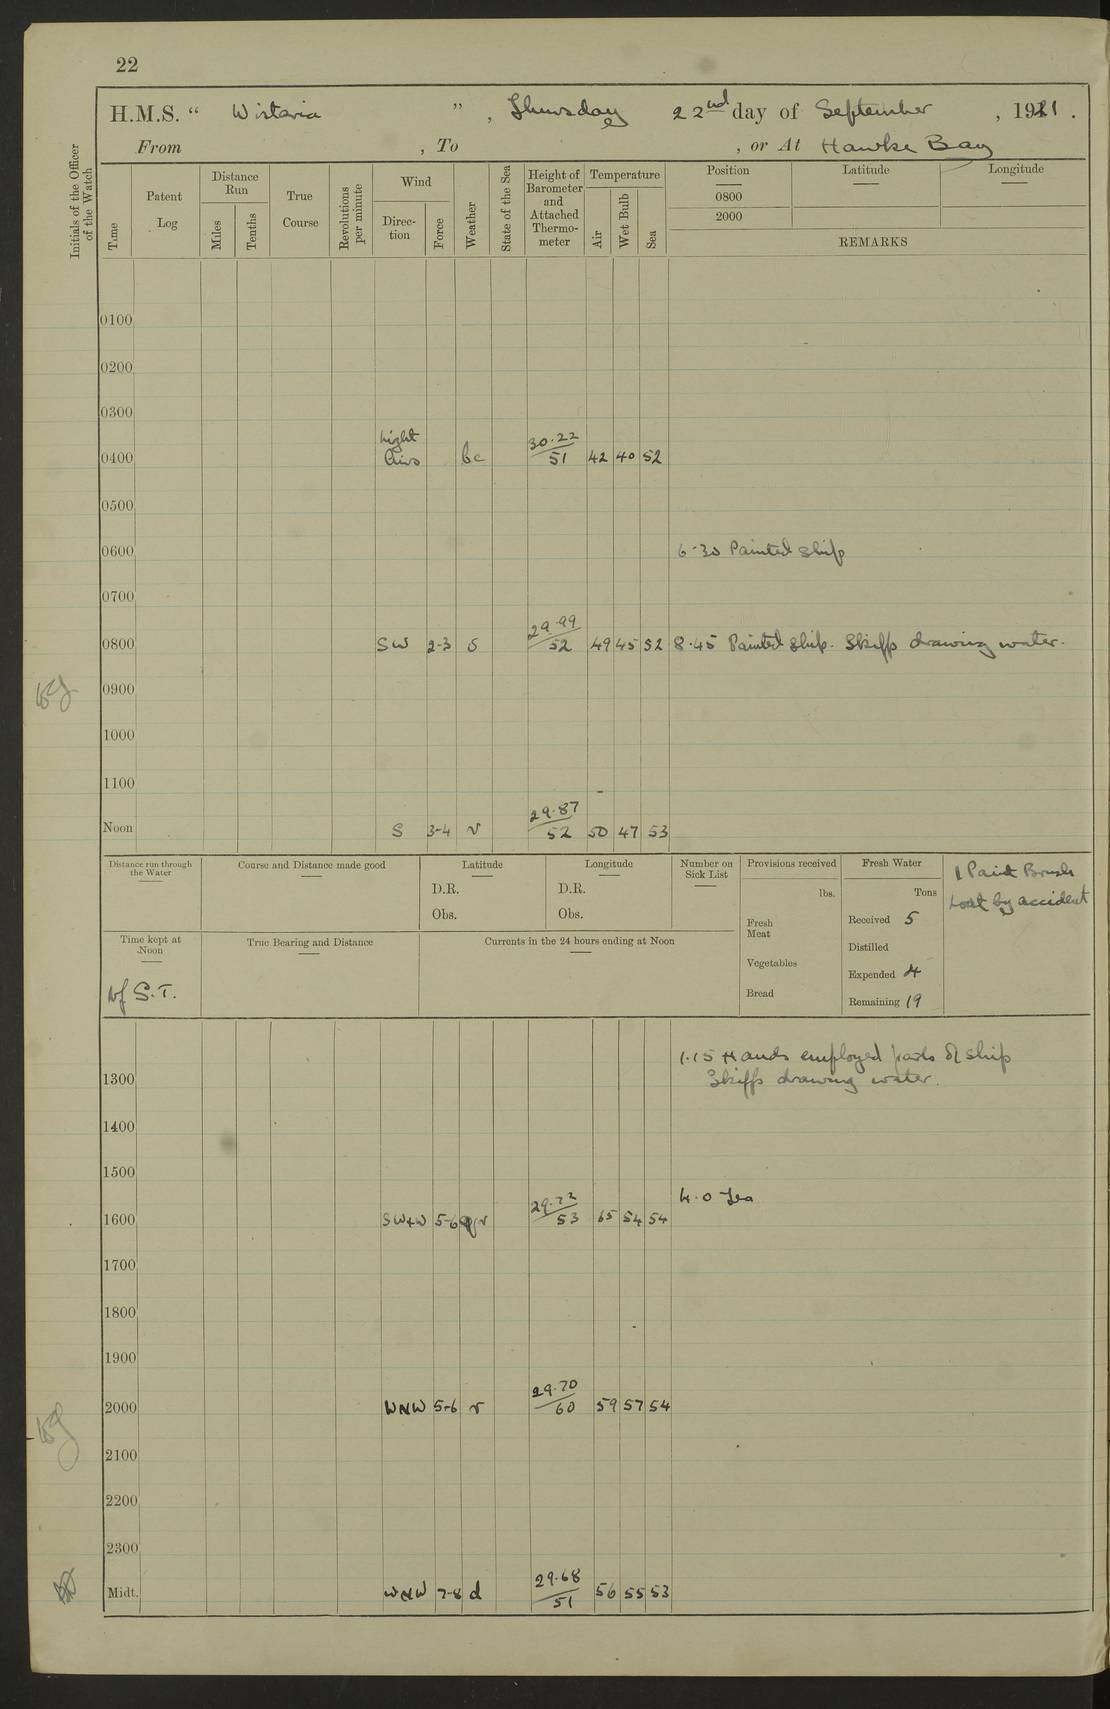 22
H.M.S. “ Wistaria ” , Thursday 22nd day of September , 1921 .
From , To , or At Hawke Bay
Initials of the Officer of the Watch
Time
Patent Log
Distance Run
Miles
Tenths
True Course
Revolutions per minute
Wind
Direction
Force
Weather
State of the Sea
Height of Barometer and Attached Thermometer
Temperature
Air
Wet Bulb
Sea
Position
Latitude
Longitude
0800
2000
REMARKS
0100
0200
0300
0400 Light Airs bc 30.22/51 42 40 52
0500
0600 6-30 Painted ship
0700
0800 SW 2-3 o 29.99/52 49 45 52 8.45 Painted ship. Skiffs drawing water.
0900
1000
1100
Noon S 3-4 r 29.87/52 50 47 53
Distance run through the Water
Course and Distance made good
Latitude
D.R.
Obs.
Longitude
D.R.
Obs.
Number on Sick List
Provisions received
lbs.
Fresh Meat
Vegetables
Bread
Fresh Water
Tons
Received 5
Distilled
Expended 4
Remaining 19
1 Paint Brush
Lost by accident
Time kept at Noon
Nf S.T.
True Bearing and Distance
Currents in the 24 hours ending at Noon
1.15 Hands employed parts of ship
1300 Skiffs drawing water.
1400
1500
4.0 Tea
1600 SW+W 5-6 r 29.72/53 65 54 54
1700
1800
1900
2000 WNW 5-6 r 29.70/60 59 57 54
2100
2200
2300
Midt. WNW 7-8 d 29.68/51 56 55 53